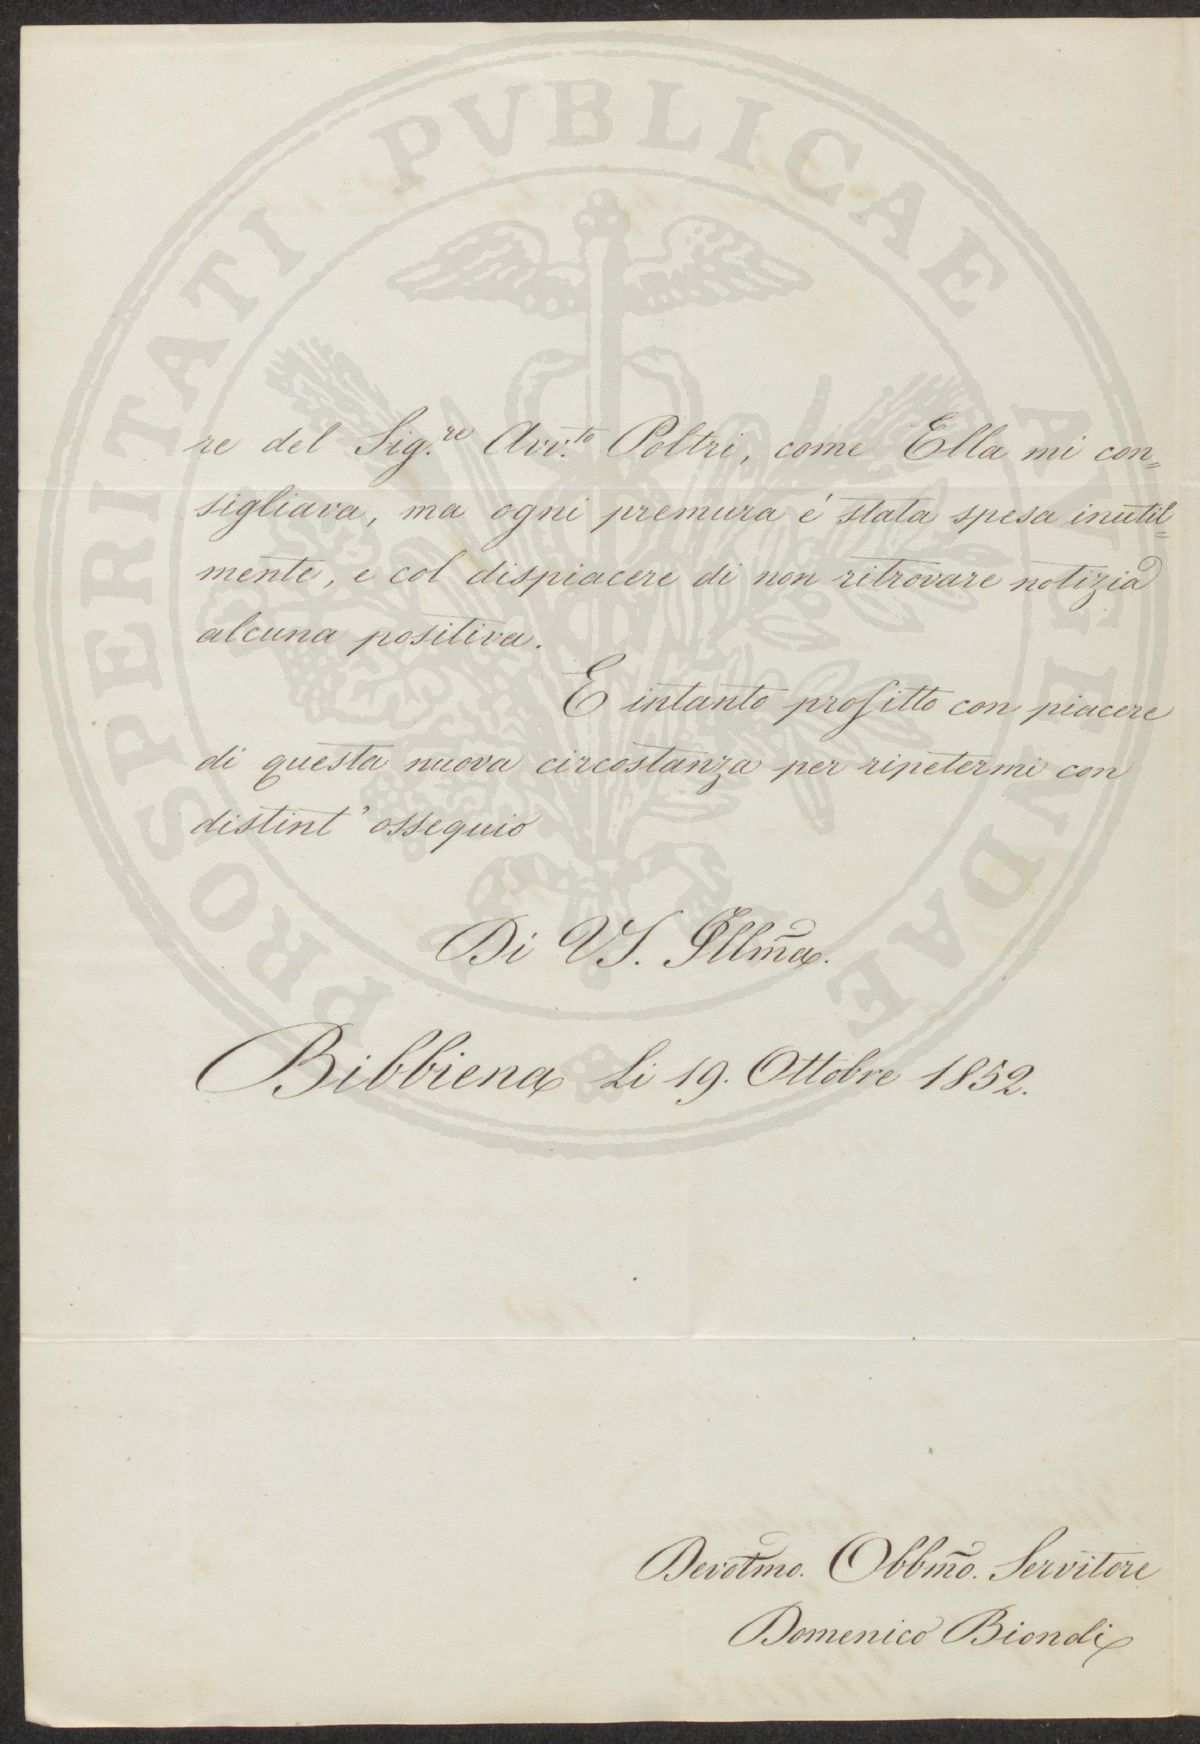 PROSPERITATI PVBLICAE AVGENDAE
re del Sig.re Avv.to Poltri, come Ella mi con=
sigliava, ma ogni premura é stata spesa inutil=
mente, e col dispiacere di non ritrovare notizia
alcuna positiva.
E intanto profitto con piacere
di questa nuova circostanza per ripetermi con
distint' ossequio
Di VS. Illma.
Bibbiena Li 19. Ottobre 1852.
Devotmo. Obbmo. Servitore
Domenico Biondi